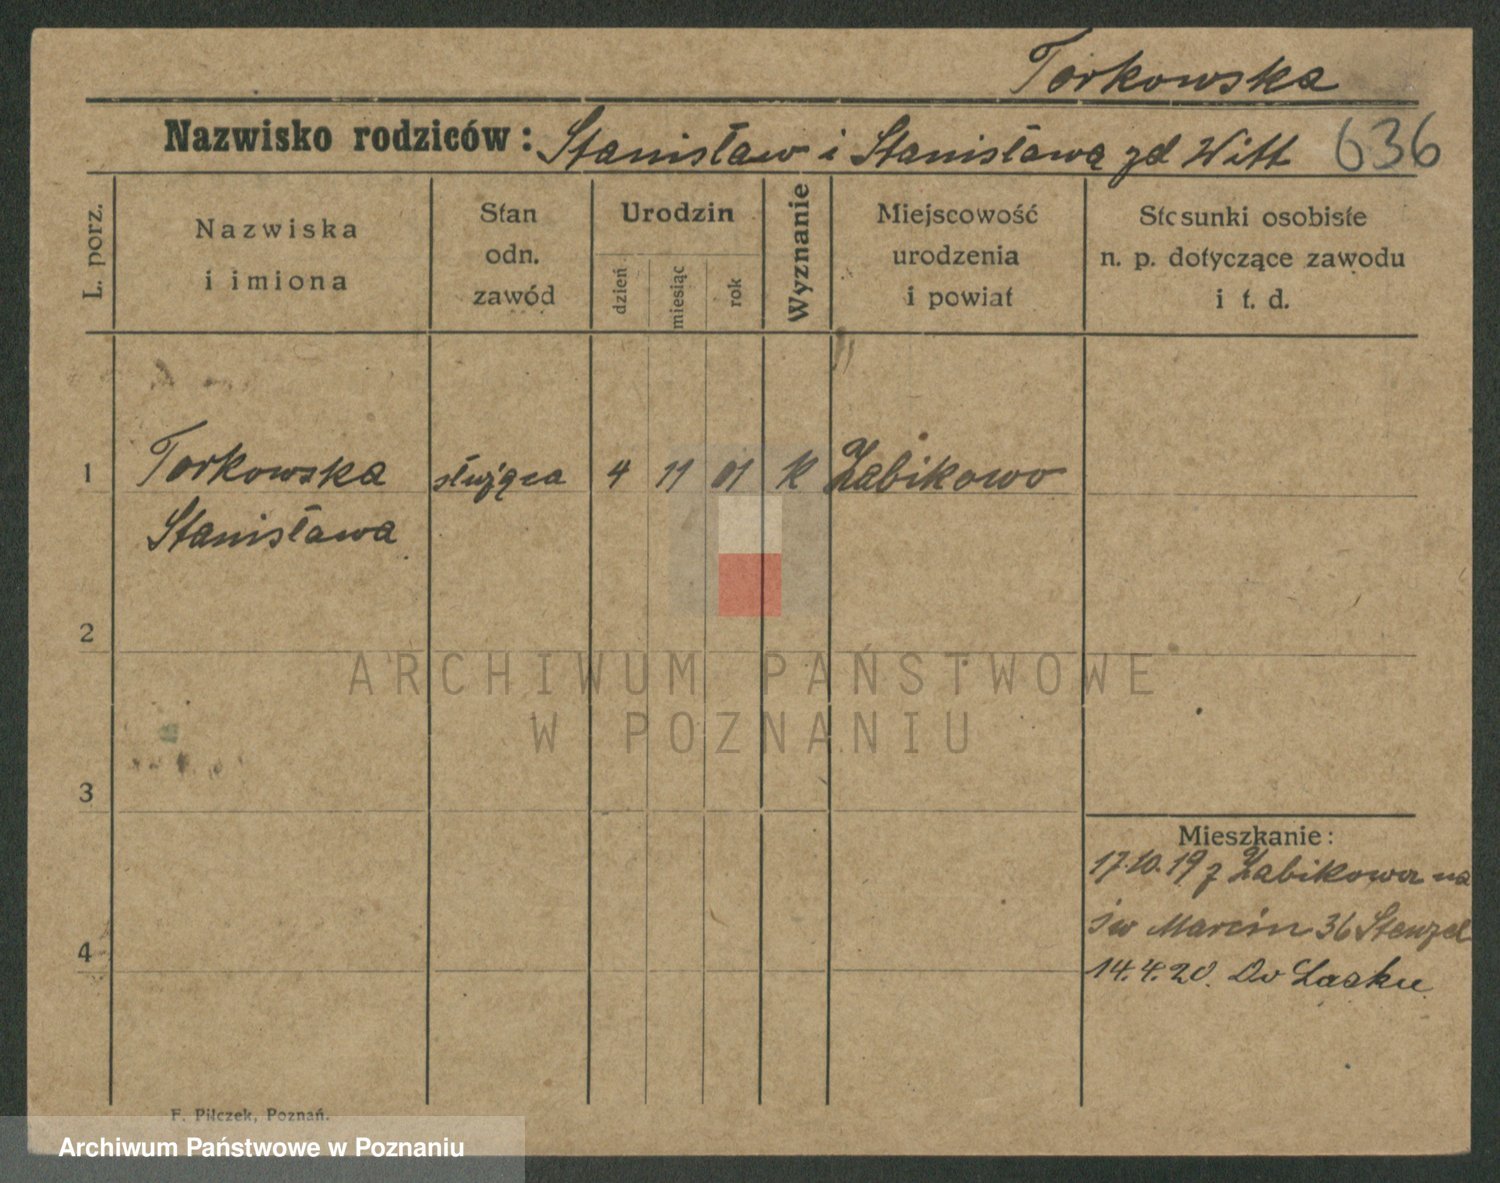 Torkowska
Nazwisko rodziców: Stanisław i Stanisława zd Witt 636
L. porz.
Nazwiska
i imiona
Stan
odn.
zawód
Urodzin
dzień
miesiąc
rok
Wyznanie
Miejscowość
urodzenia
i powiat
Stosunki osobiste
n. p. dotyczące zawodu
i t. d.
1 Torkowska służąca 4 11 01 K Żabikowo
Stanisława
2
3
4
Mieszkanie:
17.10.19 z Żabikowa na
św Marcin 36 Stenzel
14.4.20. Do Lasku
F. Pilczek, Poznań.
ARCHIWUM PAŃSTWOWE
W POZNANIU
Archiwum Państwowe w Poznaniu